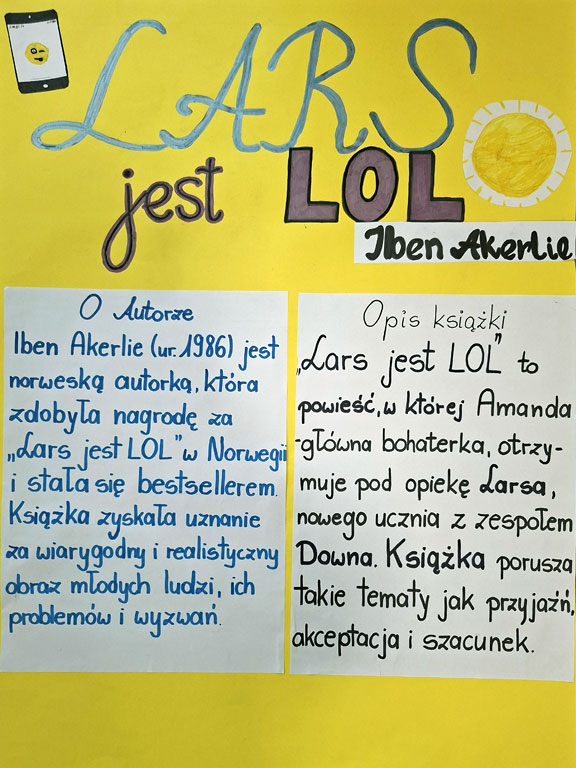 LARS
jest LOL
Iben Akerlie
O Autorze
Iben Akerlie (ur. 1986) jest
norweską autorką, która
zdobyła nagrodę za
„Lars jest LOL" w Norwegii
i stała się bestsellerem.
Książka zyskała uznanie
za wiarygodny i realistyczny
obraz młodych ludzi, ich
problemów i wyzwań.
Opis książki
„Lars jest LOL" to
powieść, w której Amanda
-główna bohaterka, otrzy-
muje pod opiekę Larsa,
nowego ucznia z zespołem
Downa. Książka porusza
takie tematy jak przyjaźń,
akceptacja i szacunek.